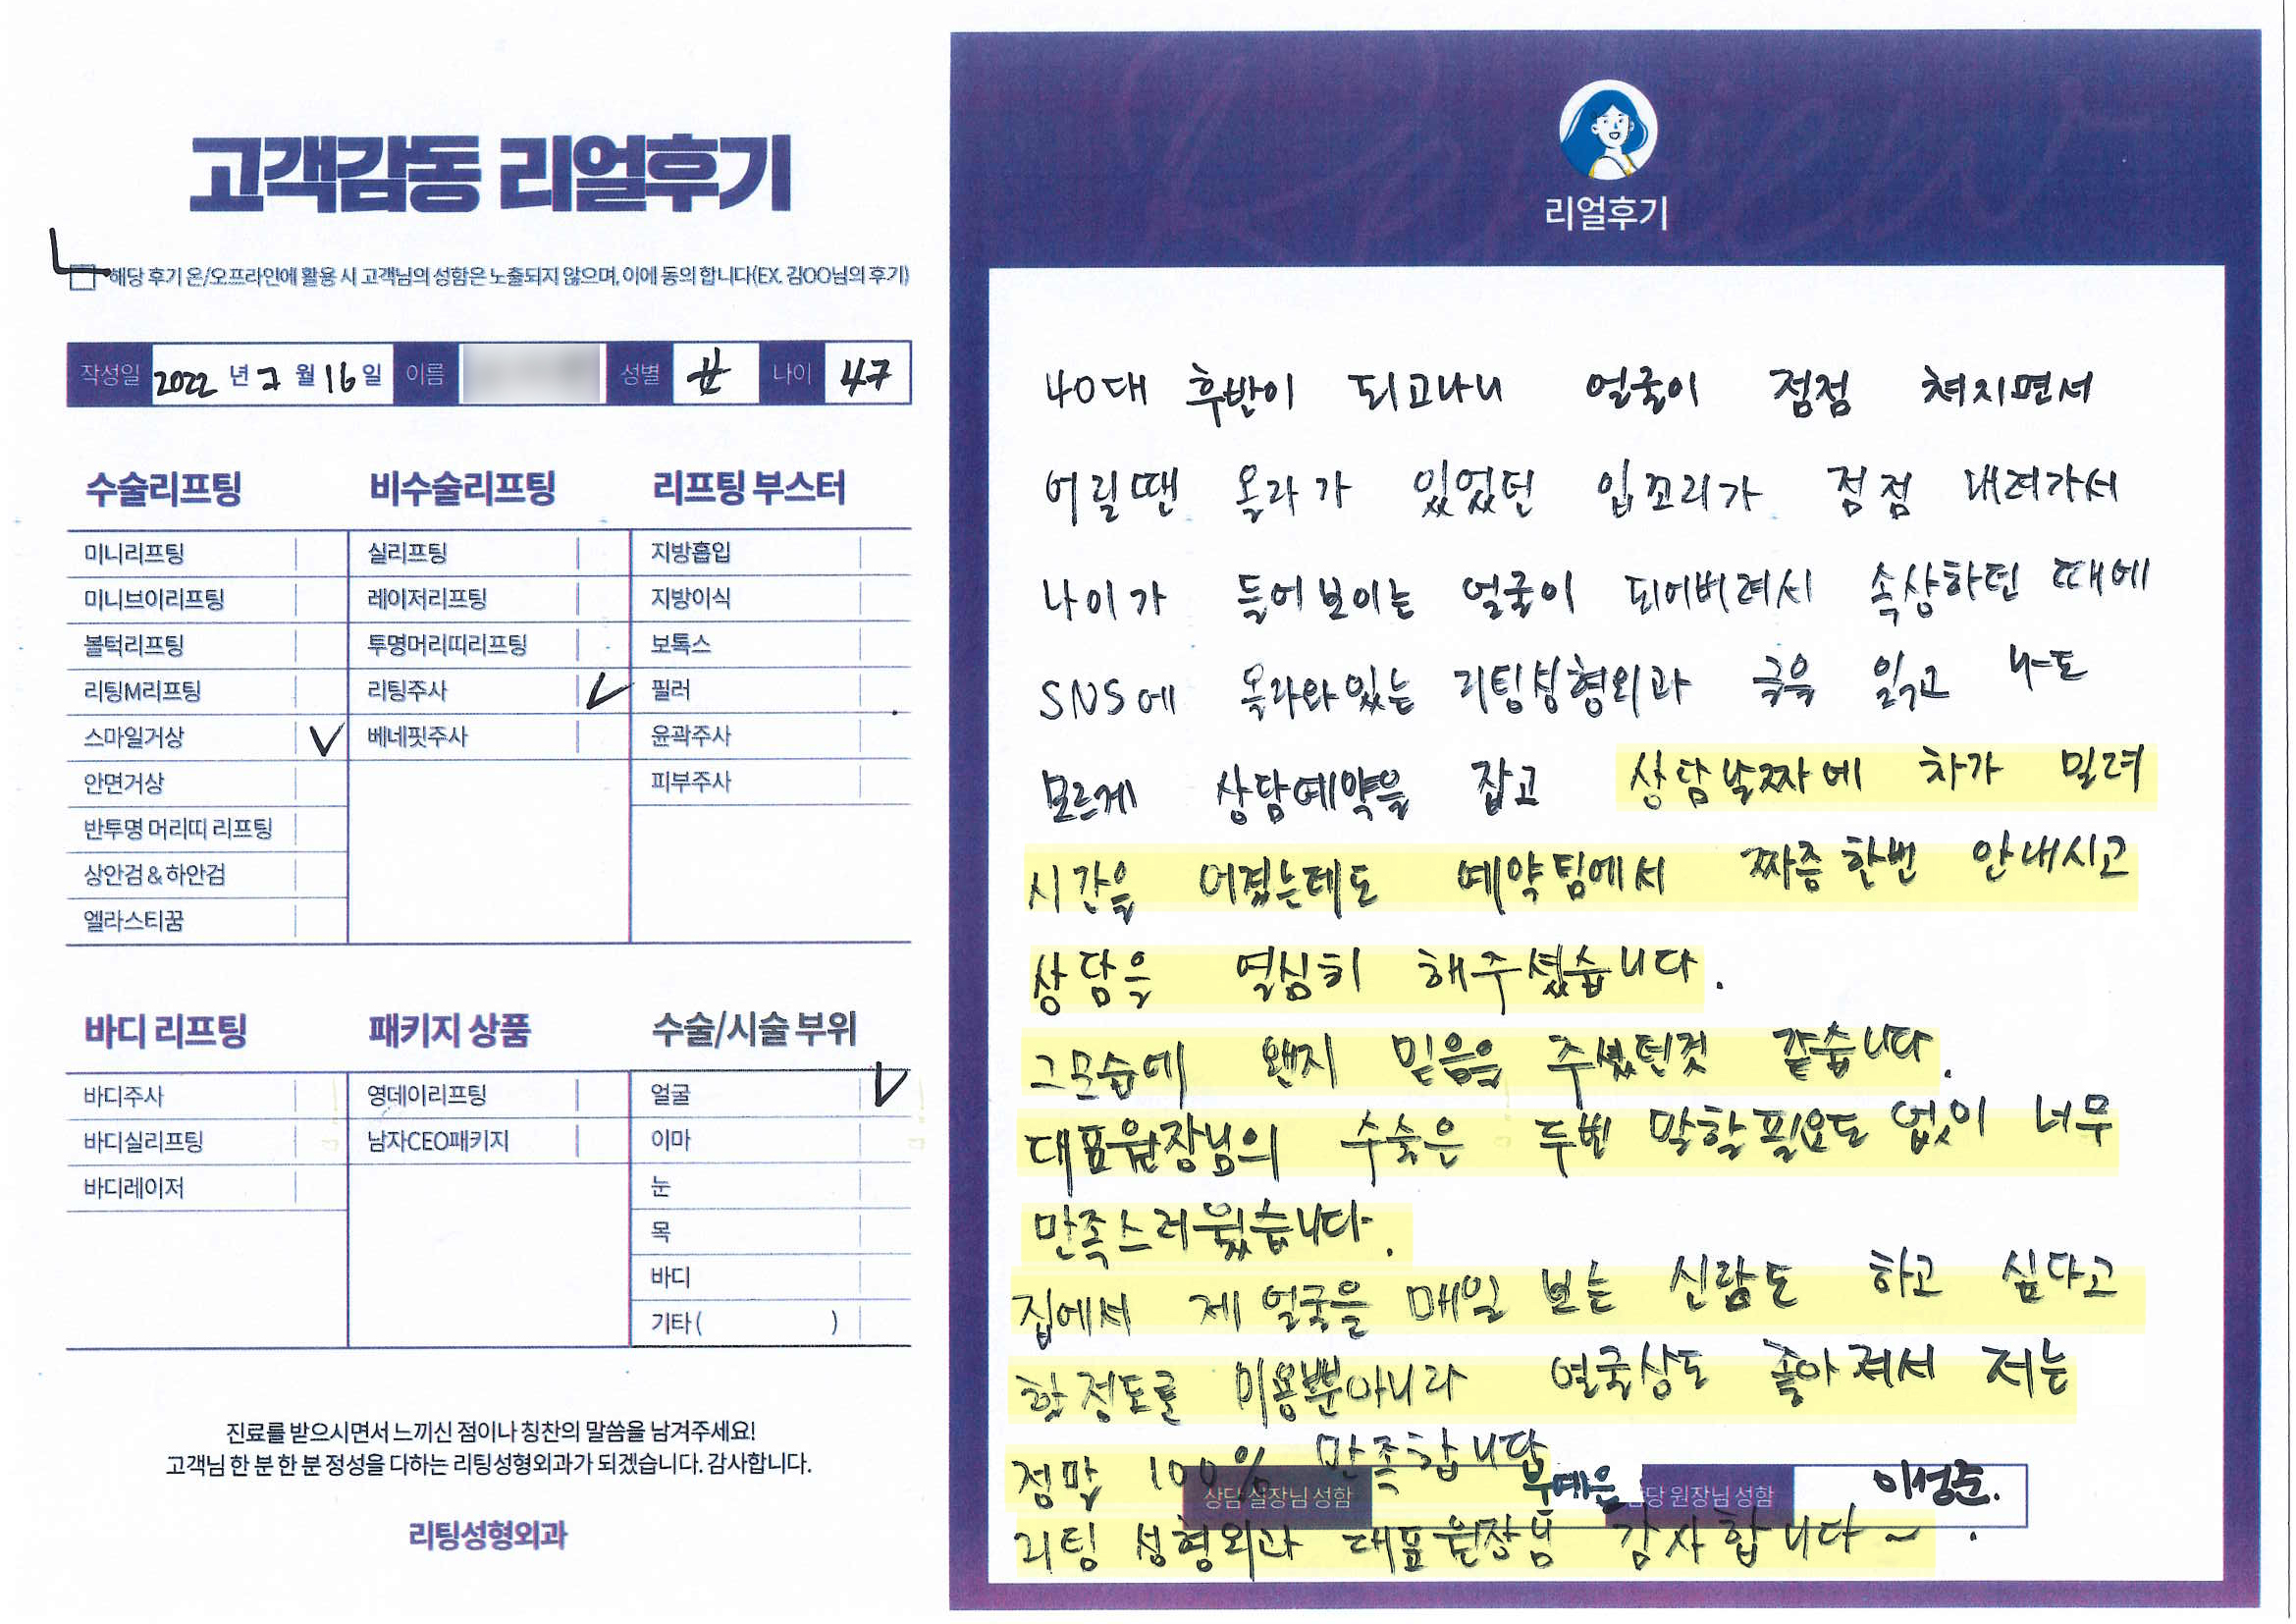 고객감동 리얼후기
해당 후기 온/오프라인에 활용 시 고객님의 성함은 노출되지 않으며, 이에 동의 합니다(EX. 김OO님의 후기)
작성일 2022 년 7 월 16 일 이름 성별 나이 47
수술리프팅
미니리프팅
미니브이리프팅
볼턱리프팅
리팅M리프팅
스마일거상
안면거상
반투명 머리띠 리프팅
상안검 & 하안검
엘라스티꿈
비수술리프팅
실리프팅
레이저리프팅
투명머리띠리프팅
리팅주사
베네핏주사
리프팅 부스터
지방흡입
지방이식
보톡스
필러
윤곽주사
피부주사
바디 리프팅
바디주사
바디실리프팅
바디레이저
패키지 상품
영데이리프팅
남자CEO패키지
수술/시술 부위
얼굴
이마
눈
목
바디
기타 ( )
진료를 받으시면서 느끼신 점이나 칭찬의 말씀을 남겨주세요!
고객님 한 분 한 분 정성을 다하는 리팅성형외과가 되겠습니다. 감사합니다.
리팅성형외과
리얼후기
40대 후반이 되고나니 얼굴이 점점 쳐지면서
어릴땐 올라가 있었던 입꼬리가 점점 내려가서
나이가 들어보이는 얼굴이 되어버려서 속상하던 때에
SNS에 올라와있는 리팅성형외과 글을 읽고 나도
모르게 상담예약을 잡고 상담날짜에 차가 밀려
시간을 어겼는데도 예약팀에서 짜증한번 안내시고
상담을 열심히 해주셨습니다.
그모습에 왠지 믿음을 주셨던것 같습니다.
대표원장님의 수술은 두번 말할필요도 없이 너무
만족스러웠습니다.
집에서 제 얼굴을 매일 보는 신랑도 하고 싶다고
할정도로 미용뿐아니라 얼굴상도 좋아져서 저는
정말 100% 만족합니다
상담 실장님 성함 우예은 담당 원장님 성함 이성준.
리팅 성형외과 대표원장님 감사합니다~.